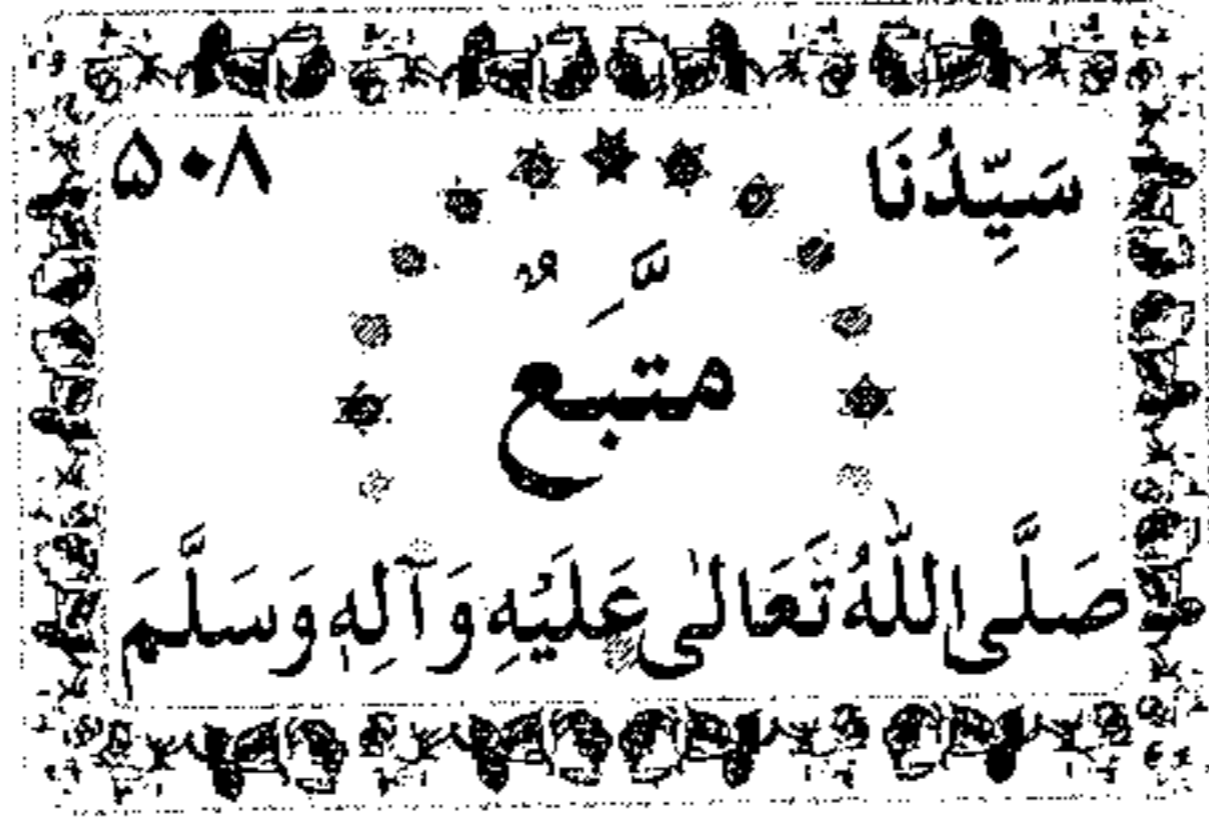 سَيِّدُنَا ۵۰۸
متَّبَعٌ
صَلَّى اللّٰهُ تَعَالٰى عَلَيْهِ وَآلِهٖ وَسَلَّمَ